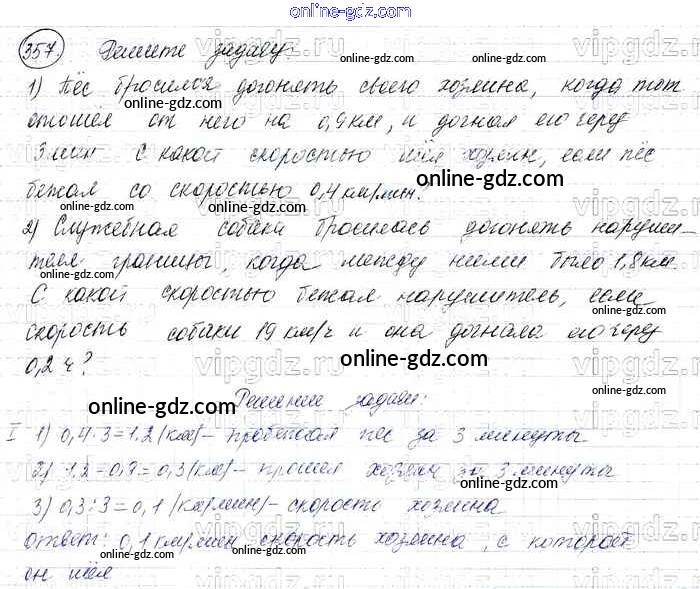 online-gdz.com
357. Решите задачу:
1) Пёс бросился догонять своего хозяина, когда тот
online-gdz.com online-gdz.com
отошёл от него на 0,9 км, и догнал его через
3 мин С какой скоростью шёл хозяин, если пёс
online-gdz.com
бежал со скоростью 0,4 км/мин.
2) Служебная собака бросилась догонять наруши-
online-gdz.com online-gdz.com
теля границы, когда между ними было 1,8 км.
С какой скоростью бежал нарушитель, если
скорость собаки 19 км/ч и она догнала его через
0,2 ч?
online-gdz.com
Решение задачи:
online-gdz.com
I 1) 0,4·3=1.2 (км) – пробежал пёс за 3 минуты
2) 1,2–0,9=0,3 (км) – прошёл хозяин за 3 минуты
online-gdz.com
3) 0,3:3=0,1 (км/мин) – скорость хозяина
online-gdz.com
ответ: 0,1 км/мин скорость хозяина, с которой
online-gdz.com
он шёл